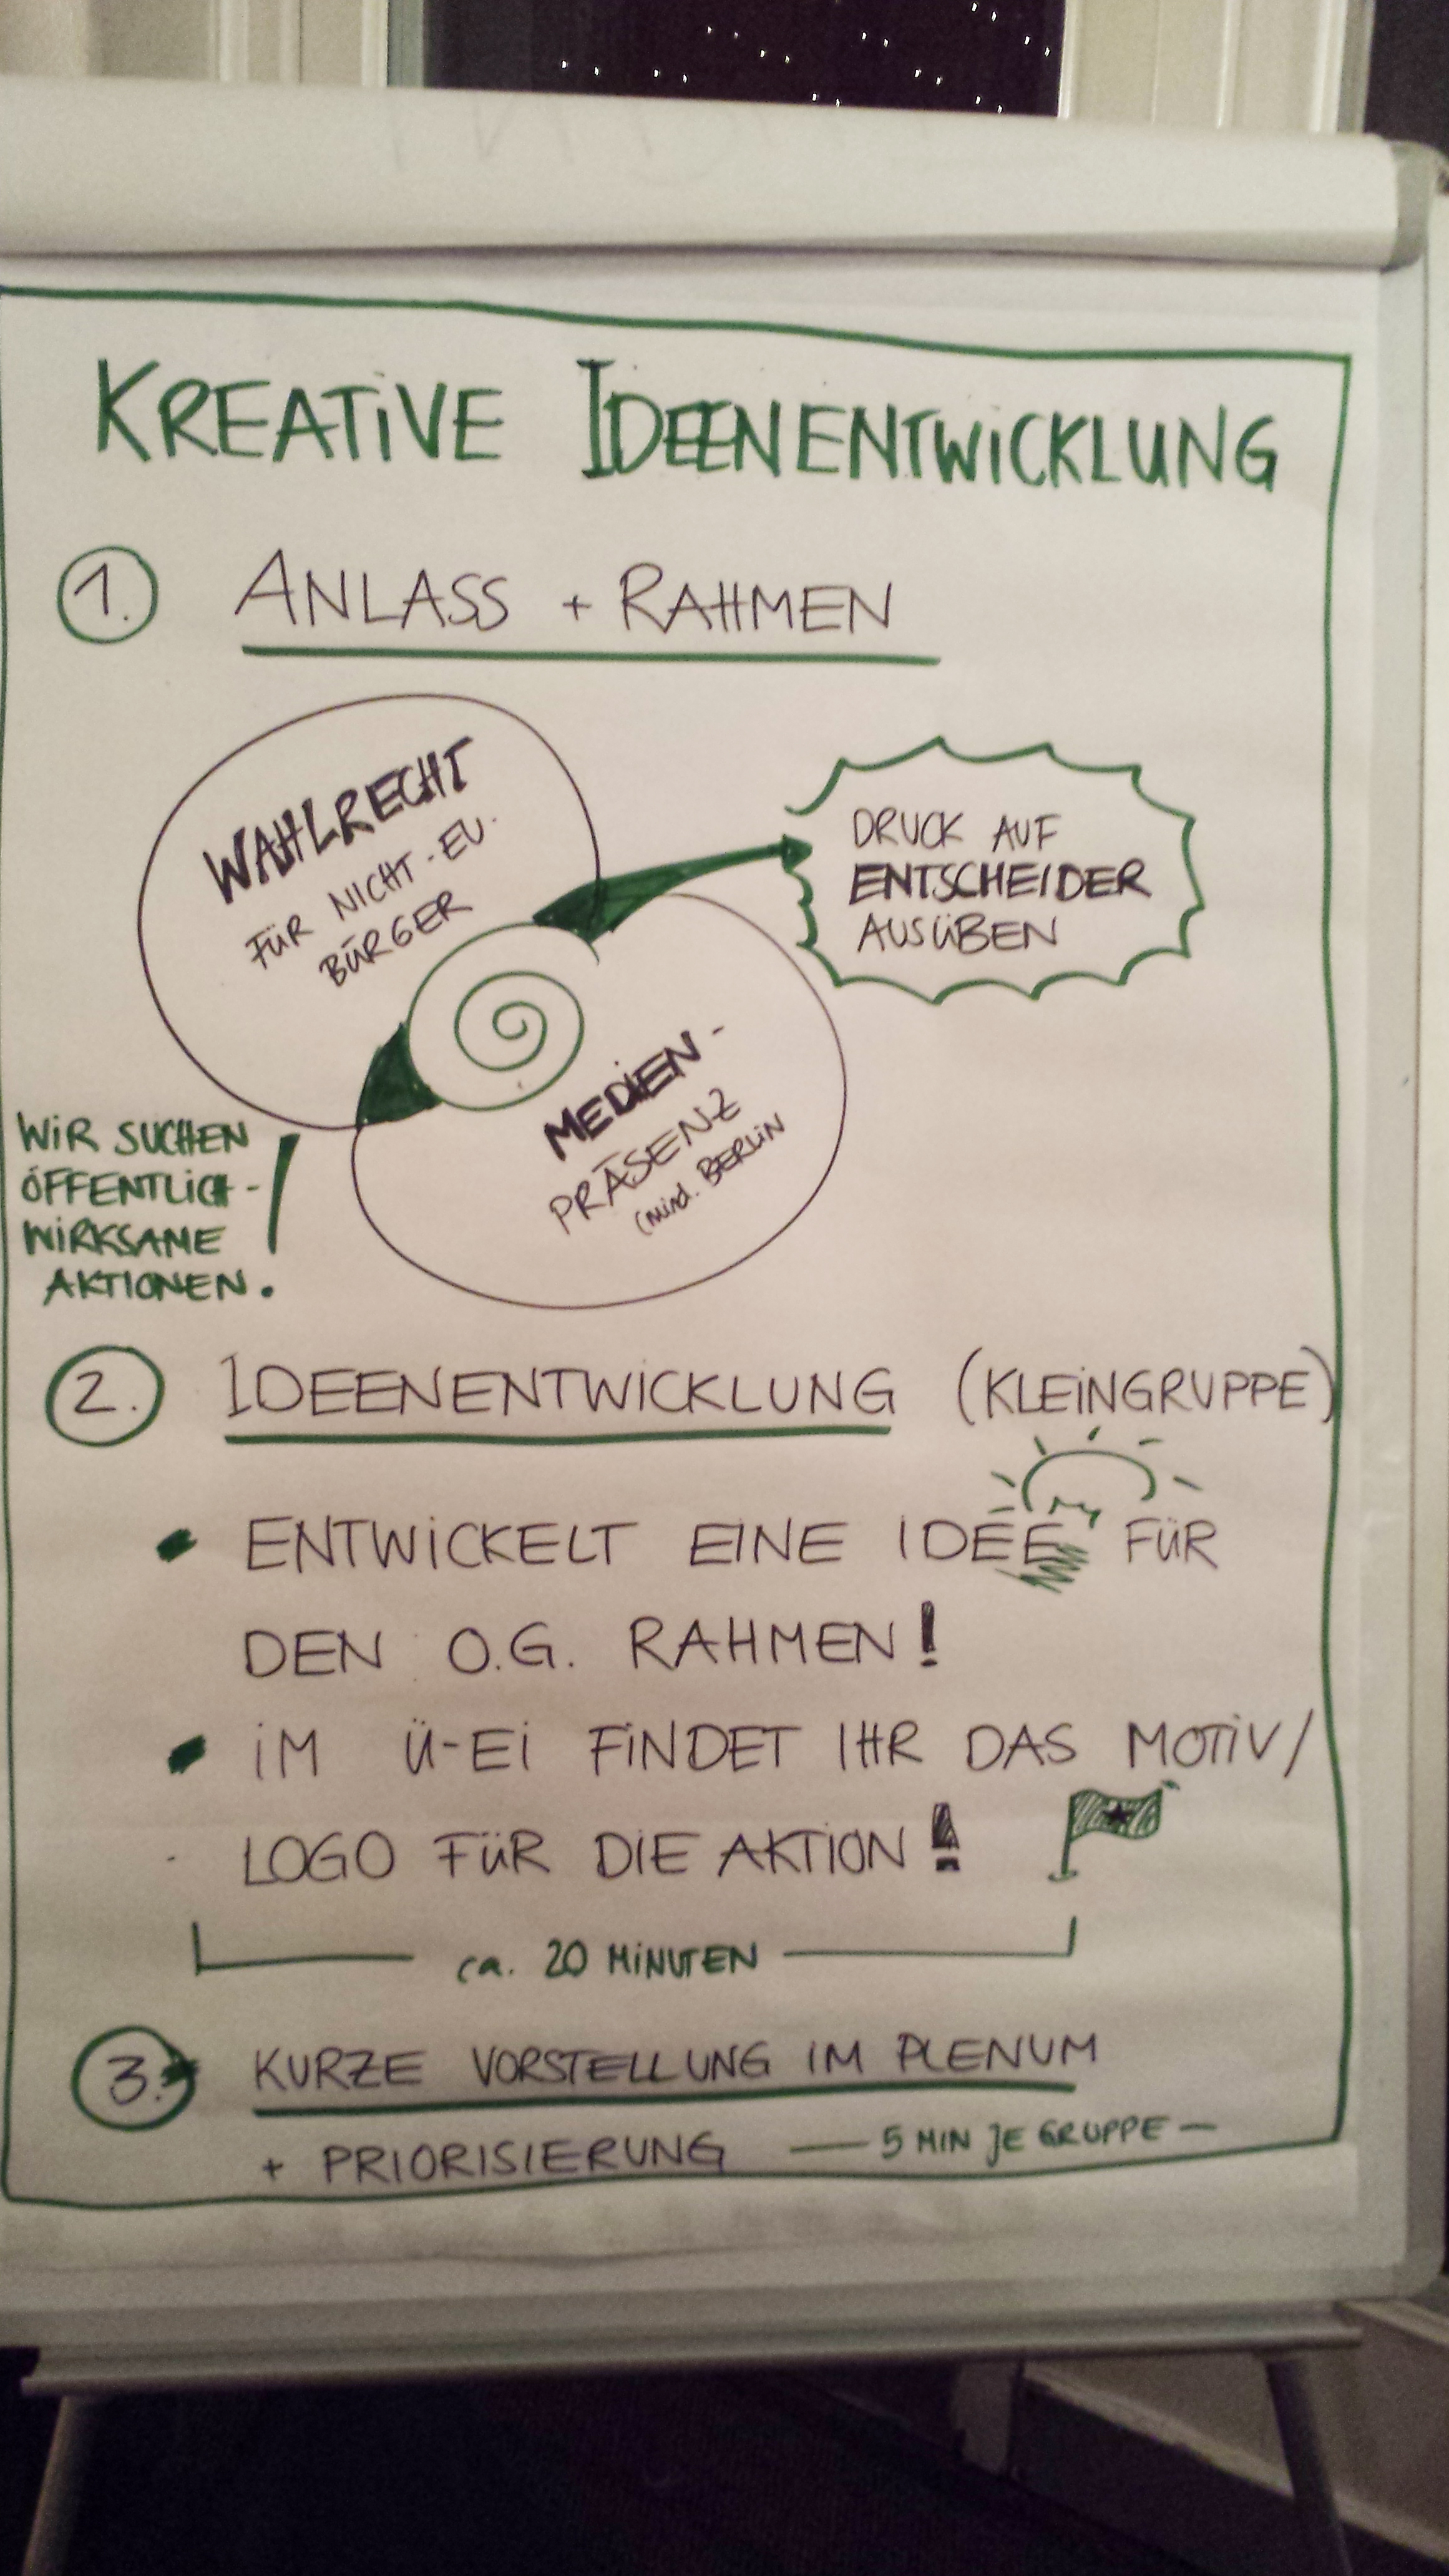 KREATiVE IDEENENTWiCKLUNG
1. ANLASS + RAHMEN
WAHLRECHT
FÜR NICHT-EU-
BÜRGER
DRUCK AUF
ENTSCHEIDER
AUSÜBEN
MEDiEN-
PRÄSENZ
(mind. BERLiN
WiR SUCHEN
ÖFFENTLiCH-
WiRKSAME
AKTIONEN.
2. IDEENENTWiCKLUNG (KLEiNGRUPPE)
ENTWiCKELT EINE IDEE FÜR
DEN O.G. RAHMEN!
iM Ü-Ei FiNDET IHR DAS MOTiV/
LOGO FÜR DIE AKTION!
ca. 20 MiNUTEN
3. KURZE VORSTELLUNG IM PLENUM
+ PRIORISIERUNG — 5 MIN JE GRUPPE —